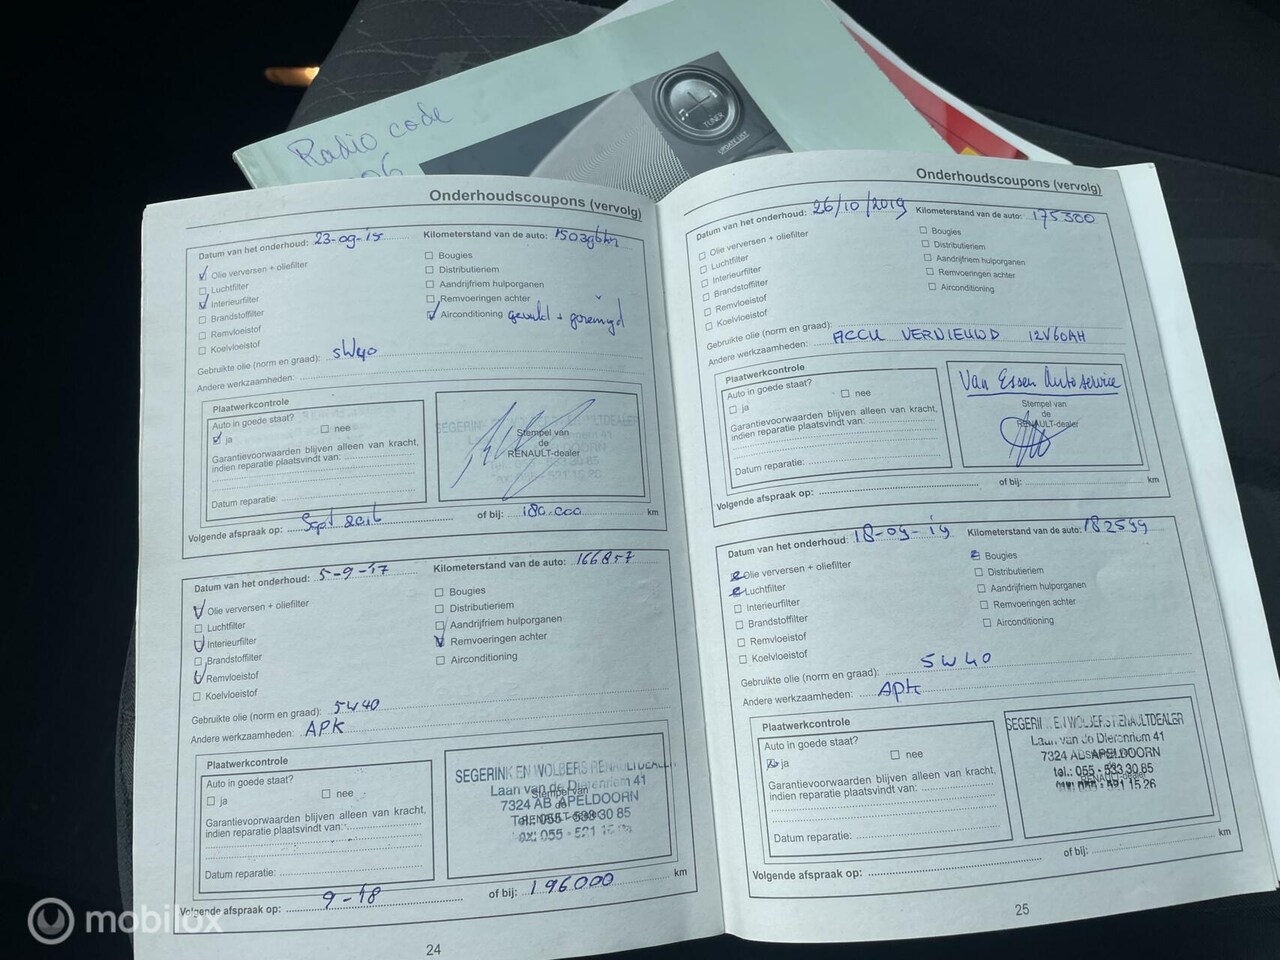 Radio code
06
TUNER
UPDATE LIST
Onderhoudscoupons (vervolg)
Datum van het onderhoud: 23-09-15 Kilometerstand van de auto: 150396km
Olie verversen + oliefilter
Luchtfilter
Interieurfilter
Brandstoffilter
Remvloeistof
Koelvloeistof
Bougies
Distributieriem
Aandrijfriem hulporganen
Remvoeringen achter
Airconditioning gevuld + gereinigd
Gebruikte olie (norm en graad): 5W40
Andere werkzaamheden:
Plaatwerkcontrole
Auto in goede staat?
ja
nee
Garantievoorwaarden blijven alleen van kracht,
indien reparatie plaatsvindt van:
Datum reparatie:
Stempel van
de
RENAULT-dealer
Volgende afspraak op: Sept 2016 of bij: 180.000 km
Datum van het onderhoud: 5-9-17 Kilometerstand van de auto: 166857
Olie verversen + oliefilter
Luchtfilter
Interieurfilter
Brandstoffilter
Remvloeistof
Koelvloeistof
Bougies
Distributieriem
Aandrijfriem hulporganen
Remvoeringen achter
Airconditioning
Gebruikte olie (norm en graad): 5W40
Andere werkzaamheden: APK
Plaatwerkcontrole
Auto in goede staat?
ja
nee
Garantievoorwaarden blijven alleen van kracht,
indien reparatie plaatsvindt van:
Datum reparatie:
SEGERINK EN WOLBERS RENAULTDEALER
Laan van de Dierenriem 41
Stempel van
7324 AB APELDOORN
Tel.: 055 - 533 30 85
Volgende afspraak op: 9-18 of bij: 196000 km
24
Onderhoudscoupons (vervolg)
Datum van het onderhoud: 26/10/2019 Kilometerstand van de auto: 175300
Olie verversen + oliefilter
Luchtfilter
Interieurfilter
Brandstoffilter
Remvloeistof
Koelvloeistof
Bougies
Distributieriem
Aandrijfriem hulporganen
Remvoeringen achter
Airconditioning
Gebruikte olie (norm en graad):
Andere werkzaamheden: ACCU VERNIEUWD 12V60AH
Plaatwerkcontrole
Auto in goede staat?
ja
nee
Garantievoorwaarden blijven alleen van kracht,
indien reparatie plaatsvindt van:
Datum reparatie:
Van Essen Autoservice
Stempel van
de
RENAULT-dealer
Volgende afspraak op: of bij: km
Datum van het onderhoud: 18-09-19 Kilometerstand van de auto: 182599
Olie verversen + oliefilter
Luchtfilter
Interieurfilter
Brandstoffilter
Remvloeistof
Koelvloeistof
Bougies
Distributieriem
Aandrijfriem hulporganen
Remvoeringen achter
Airconditioning
Gebruikte olie (norm en graad): 5W40
Andere werkzaamheden: APK
Plaatwerkcontrole
Auto in goede staat?
ja
nee
Garantievoorwaarden blijven alleen van kracht,
indien reparatie plaatsvindt van:
Datum reparatie:
SEGERINK EN WOLBERS RENAULTDEALER
Laan van de Dierenriem 41
7324 AB APELDOORN
tel.: 055 - 533 30 85
055 - 521 15 26
Volgende afspraak op: of bij: km
25
mobilox